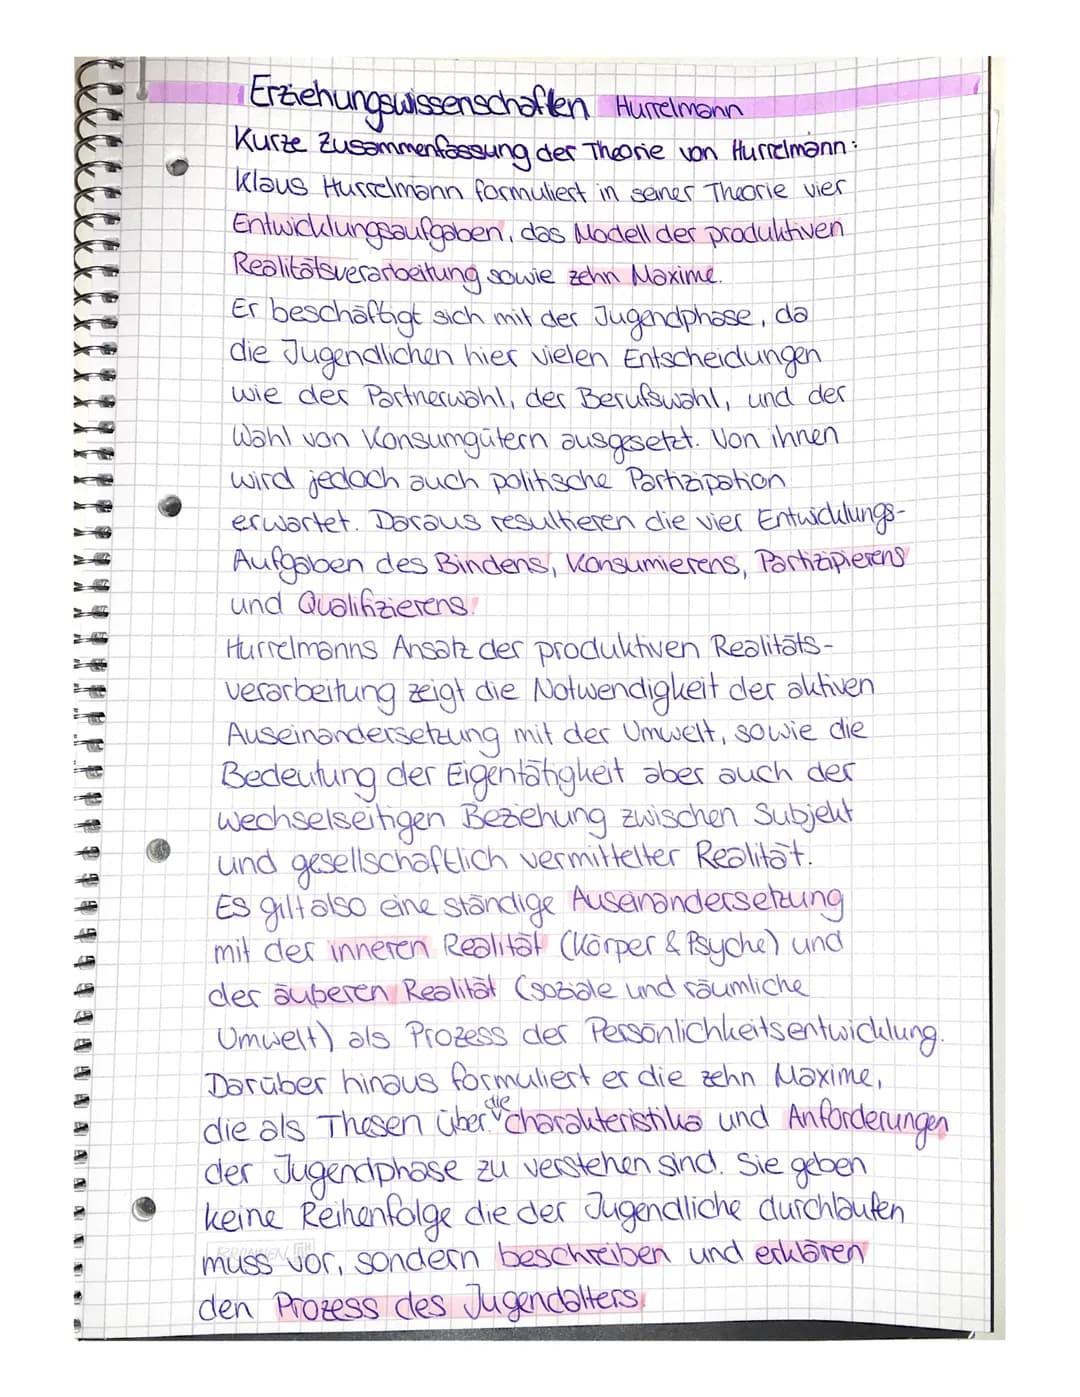 Erziehungswissenschaften Hurrelmann
Kurze Zusammenfassung der Theorie von Hurrelmann:
Klaus Hurrelmann formuliert in seiner Theorie vier
Entwicklungsaufgaben, das Modell der produktiven
Realitätsverarbeitung sowie zehn Maxime.
Er beschäftigt sich mit der Jugendphase, da
die Jugendlichen hier vielen Entscheidungen
wie der Partnerwahl, der Berufswahl, und der
Wahl von Konsumgütern ausgesetzt. Von ihnen
wird jedoch auch politische Partizipation
erwartet. Daraus resultieren die vier Entwicklungs-
Aufgaben des Bindens, Konsumierens, Partizipierens
und Qualifizierens.
Hurrelmanns Ansatz der produktiven Realitäts-
verarbeitung zeigt die Notwendigkeit der aktiven
Auseinandersetzung mit der Umwelt, sowie die
Bedeutung der Eigentätigkeit aber auch der
wechselseitigen Beziehung zwischen Subjekt
und gesellschaftlich vermittelter Realität.
Es gilt also eine ständige Auseinandersetzung
mit der inneren Realität (Körper & Psyche) und
der äußeren Realität (soziale und räumliche
Umwelt) als Prozess der Persönlichkeitsentwicklung.
Darüber hinaus formuliert er die zehn Maxime,
die als Thesen über die charakteristika und Anforderungen
der Jugendphase zu verstehen sind. Sie geben
keine Reihenfolge die der Jugendliche durchlaufen
muss vor, sondern beschreiben und erklären
den Prozess des Jugendalters.